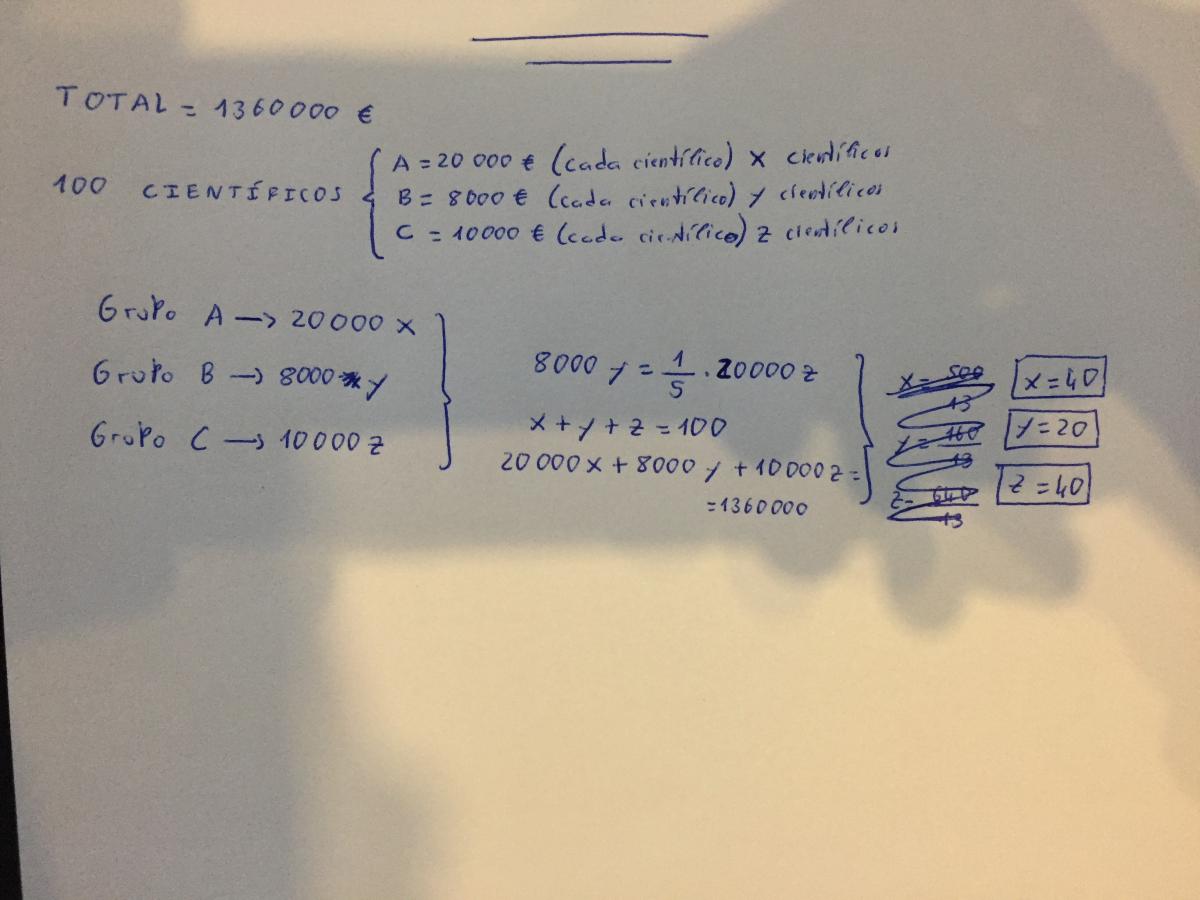 TOTAL = 1360000 €
100 CIENTÍFICOS { A = 20 000 € (cada científico) x científicos
B = 8000 € (cada científico) y científicos
C = 10000 € (cada científico) z científicos
Grupo A → 20000 x
Grupo B → 8000 y
Grupo C → 10000 z
8000 y = 1/5 · 20000 z
x + y + z = 100
20 000 x + 8000 y + 10000 z =
= 1360000
x = 500/13
y = 160/13
z = 640/13
x = 40
y = 20
z = 40